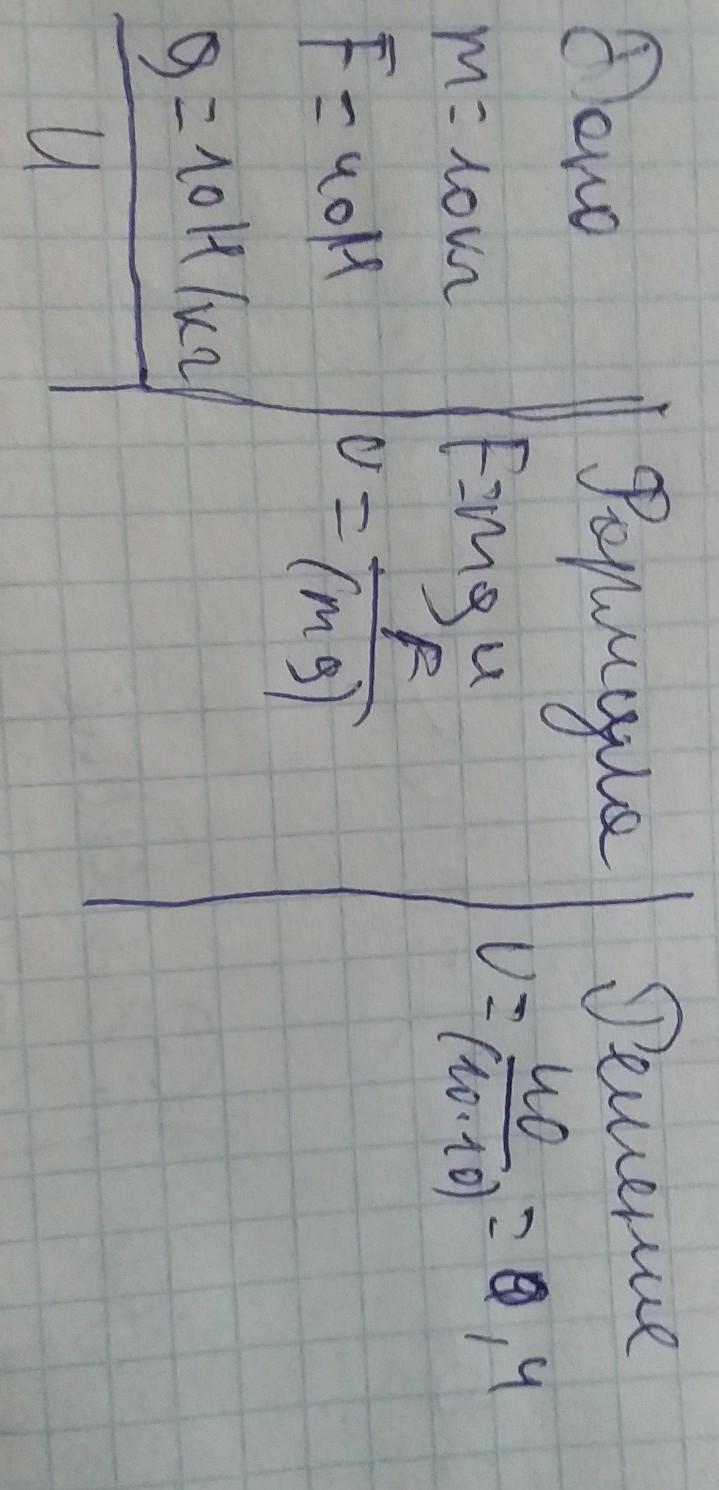 Дано
m = 10 кг
F = 40 Н
g = 10 Н/кг
U
Формула
F = mg u
υ = F / (mg)
Решение
U = 40 / (10·10) = 0,4